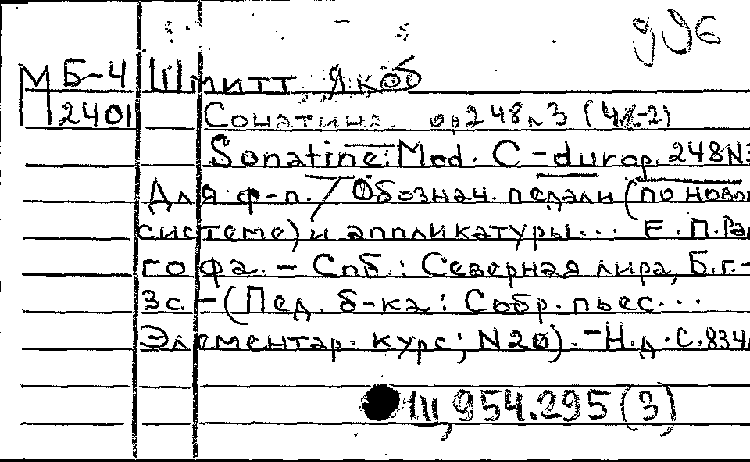 996
М Б-4 Шмитт, Якоб
П 2401 Сонатина. ор 248 N 3 (Ч.1-2)
Sonatine: Mod. C-dur op. 248 N3
Для ф-п. / Обознач. педали (по новой
системе) и аппликатуры... Е. П. Ра
гофа. - Спб.: Северная лира, Б.г. -
3с. - (Пед. б-ка: Собр. пьес...
Элементар. курс; N20). - Н.д. С.834
Ш, 954.295 (3)